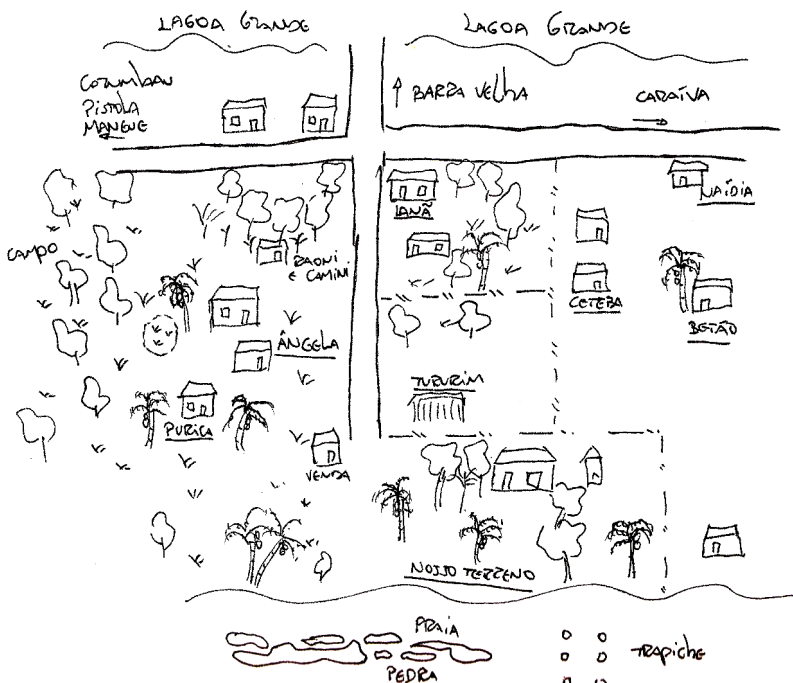 LAGOA GRANDE
LAGOA GRANDE
CORUMBAU
PISTOLA
MANGUE
BARRA VELHA
CARAÍVA
IANÃ
NAÍDIA
CAMPO
RAONI
E CAMINI
CETEBA
BETÃO
ÂNGELA
TURURIM
PURIÇA
VENDA
NOSSO TERRENO
PRAIA
PEDRA
TRAPICHE